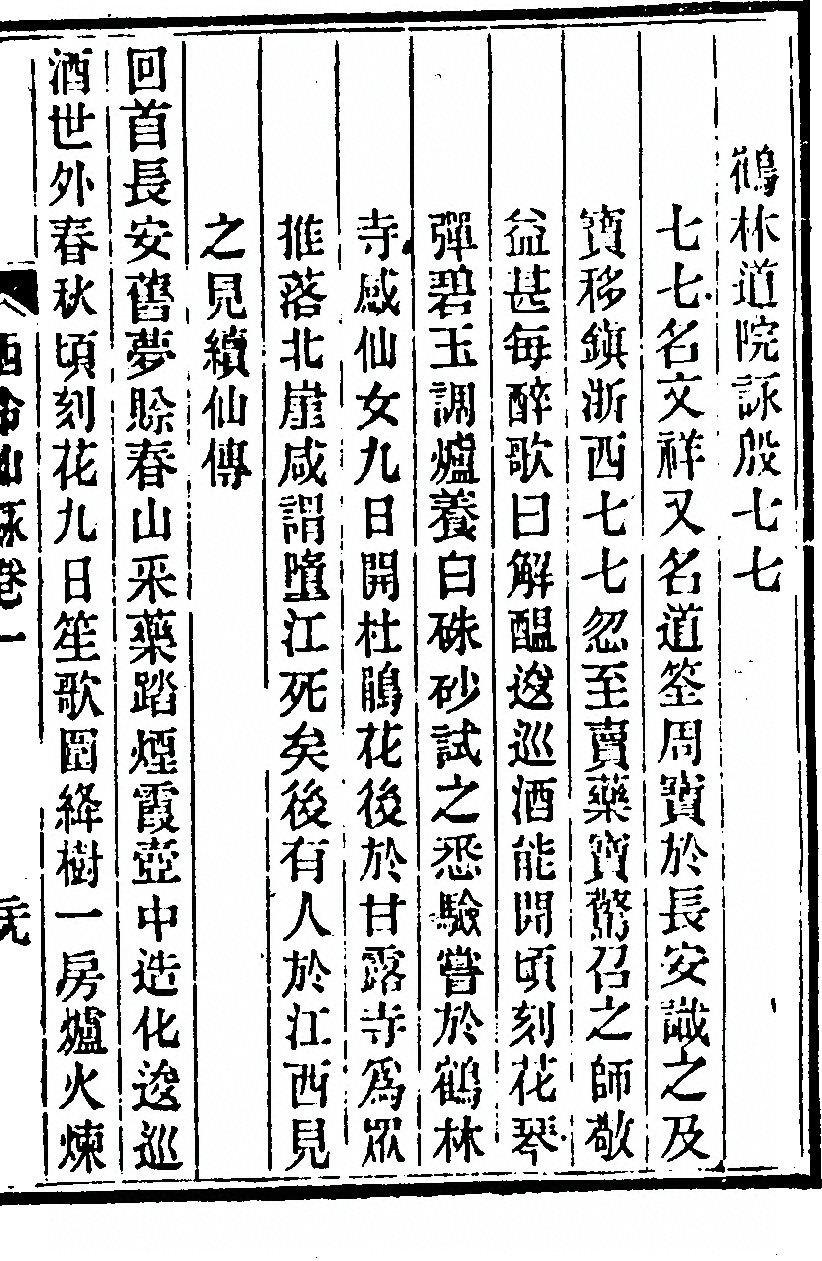 鶴林道院詠殷七七
七七名文祥又名道筌周寶於長安識之及
寶移鎮浙西七七忽至賣藥寶驚召之師敬
益甚每醉歌曰解醞逡巡酒能開頃刻花琴
彈碧玉調爐養白硃砂試之悉驗嘗於鶴林
寺感仙女九日開杜鵑花後於甘露寺為眾
推落北崖咸謂墮江死矣後有人於江西見
之見續仙傳
回首長安舊夢賒春山采藥踏煙霞壺中造化逡巡
酒世外春秋頃刻花九日笙歌圍絳樹一房爐火煉
西泠仙詠卷一